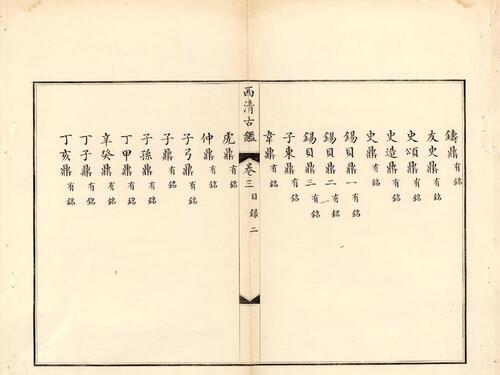 鑄鼎有銘
友史鼎有銘
史頌鼎有銘
史造鼎有銘
史鼎有銘
錫貝鼎一有銘
錫貝鼎二有銘
錫貝鼎三有銘
子東鼎有銘
韋鼎有銘
西清古鑑
卷三目錄
二
虎鼎有銘
仲鼎有銘
子弓鼎有銘
子鼎有銘
子孫鼎有銘
丁甲鼎有銘
辛癸鼎有銘
丁子鼎有銘
丁亥鼎有銘